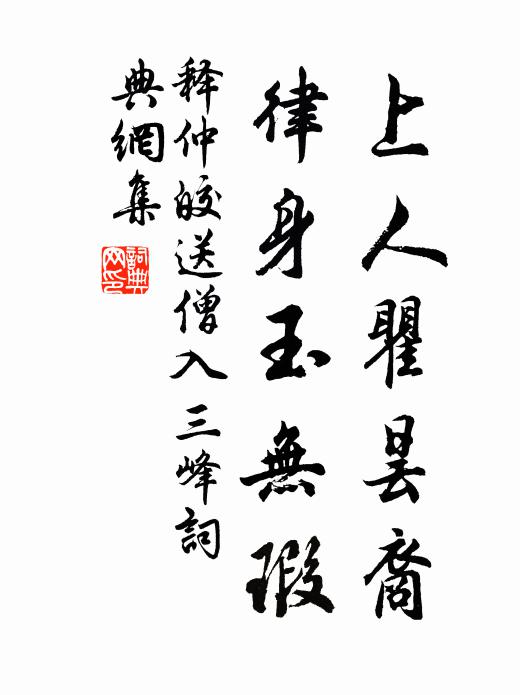 上人瞿昙裔
律身玉無瑕
释仲皎送僧入三峰詞
典網集
詞典网印